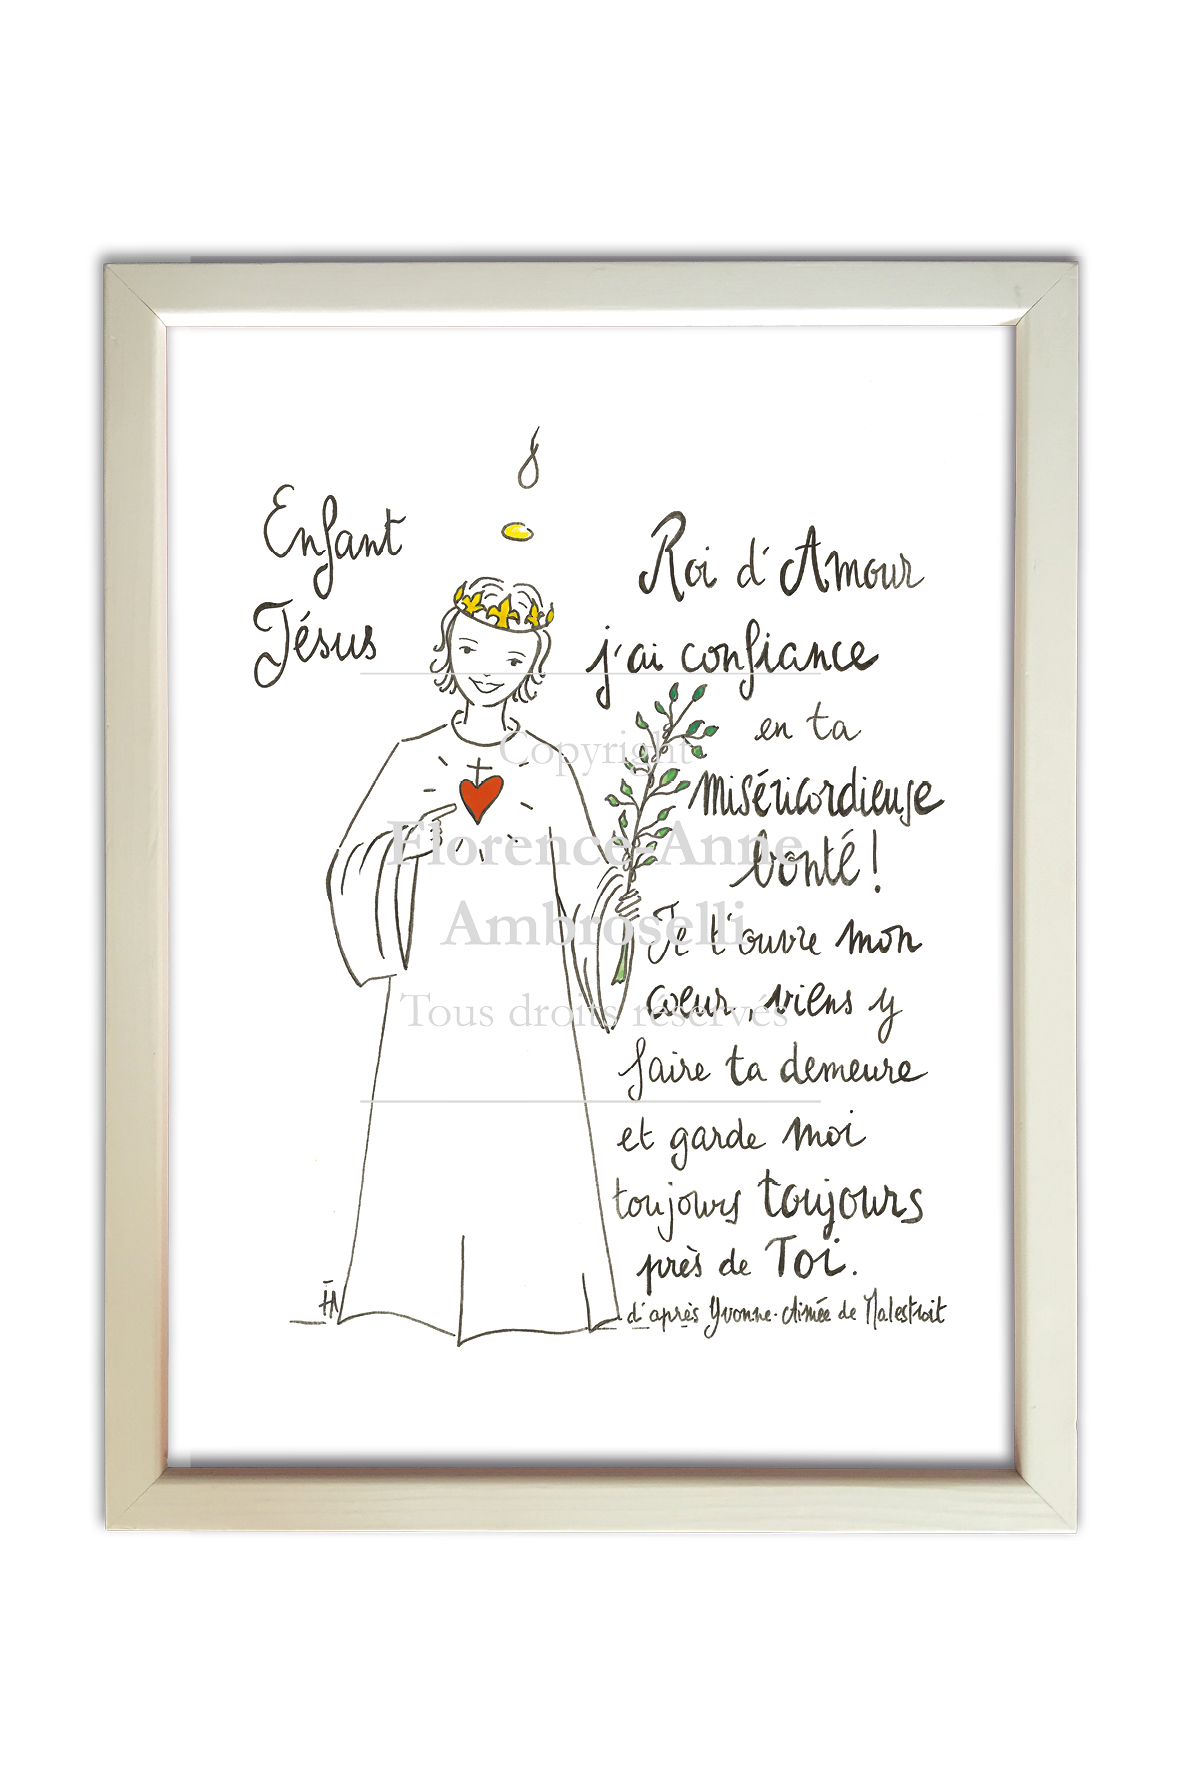 Enfant
Jésus
Roi d'Amour
j'ai confiance
en ta
miséricordieuse
bonté !
Je t'ouvre mon
cœur, viens y
faire ta demeure
et garde moi
toujours toujours
près de Toi.
d'après Yvonne-Aimée de Malestroit
FA
Copyright
Florence-Anne
Ambroselli
Tous droits réservés